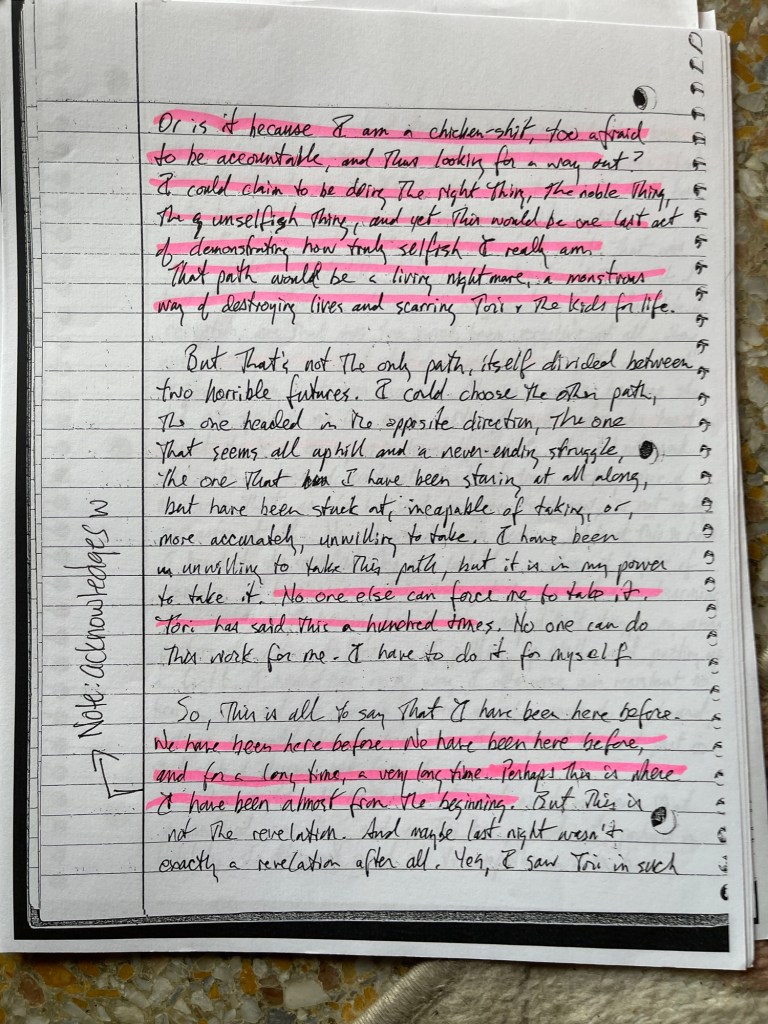 Or is it because I am a chicken-shit, too afraid
to be accountable, and thus looking for a way out?
I could claim to be doing the right thing, the noble thing,
the unselfish thing, and yet this would be one last act
of demonstrating how truly selfish I really am.
That path would be a living nightmare, a monstrous
way of destroying lives and scarring Tori + the kids for life.
But that's not the only path, itself divided between
two horrible futures. I could choose the other path,
the one headed in the opposite direction, the one
that seems all uphill and a never-ending struggle,
the one that I have been staring at all along,
but have been stuck at, incapable of taking, or,
more accurately, unwilling to take. I have been
unwilling to take this path, but it is in my power
to take it. No one else can force me to take it.
Tori has said this a hundred times. No one can do
this work for me. I have to do it for myself
So, this is all to say that I have been here before.
We have been here before. We have been here before,
and for a long time, a very long time. Perhaps this is where
I have been almost from the beginning. But this is
not the revelation. And maybe last night wasn't
exactly a revelation after all. Yes, I saw Tori in such
Note: acknowledges w